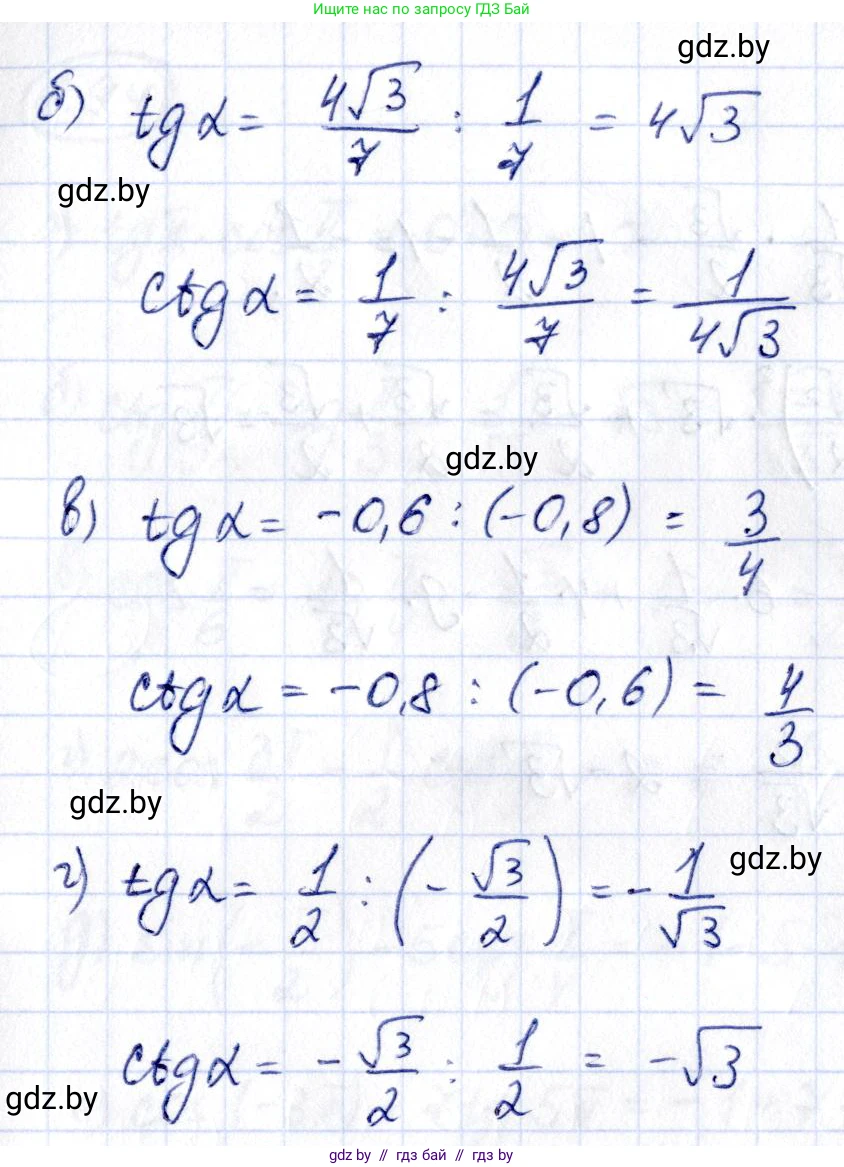 Ищите нас по запросу ГДЗ Бай
gdz.by
б) tg α = 4√3/7 : 1/7 = 4√3
gdz.by
ctg α = 1/7 : 4√3/7 = 1/(4√3)
gdz.by
в) tg α = -0,6 : (-0,8) = 3/4
ctg α = -0,8 : (-0,6) = 4/3
gdz.by
gdz.by
г) tg α = 1/2 : (-√3/2) = -1/√3
ctg α = -√3/2 : 1/2 = -√3
gdz.by
gdz.by // гдз бай // gdz.by